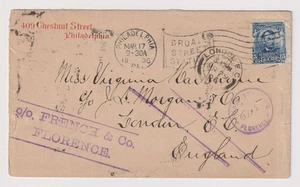 409 Chestnut Street,
Philadelphia.
PHILADELPHIA
MAR 17
9-30A
PA.
BROAD
STREET
LONDON E.C.
Miss Virginia
c/o J. S. Morgan & Co.
London, E.C.
England.
c/o. FRENCH & Co.
FLORENCE.
FLORENCE